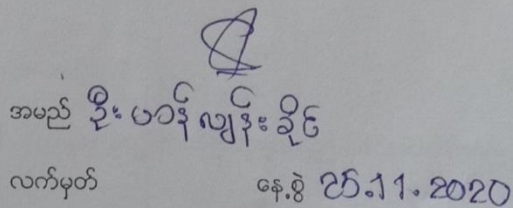 အမည် ဦး ဟန် လျန်း ခိုင်
လက်မှတ် နေ့စွဲ 25.11.2020